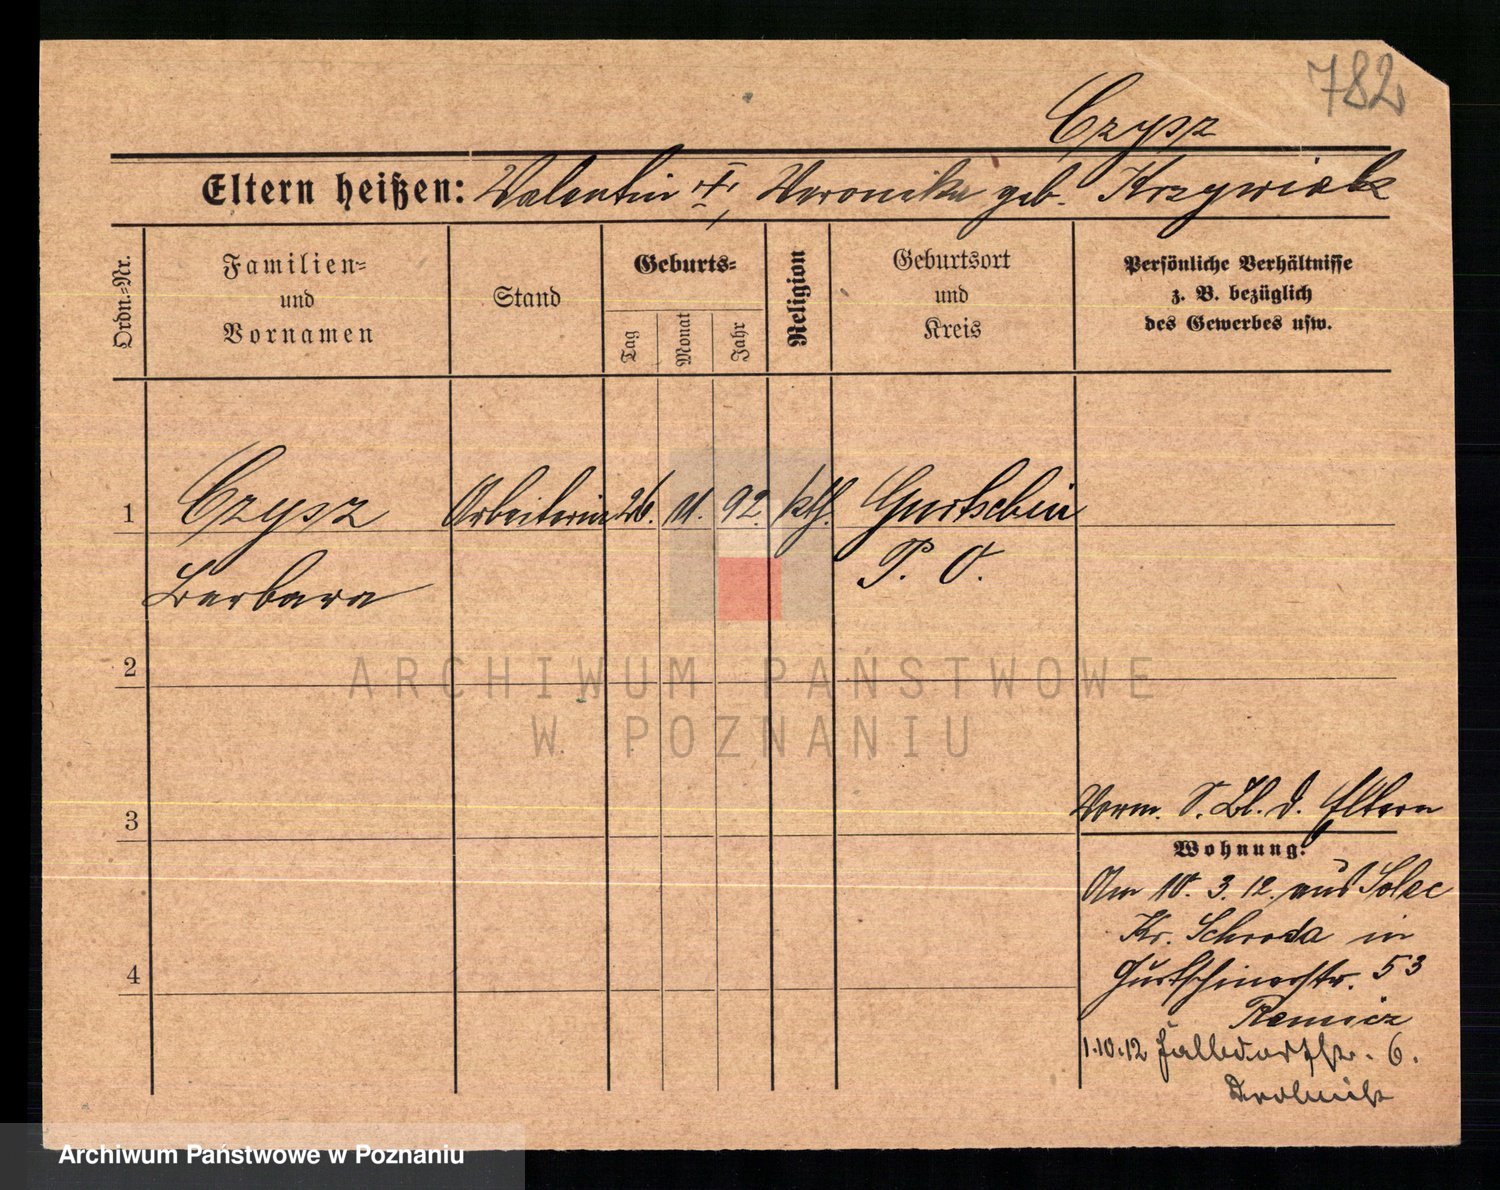 782
Czysz
Eltern heißen: Valentin †, Veronika geb. Krzywiak
Ordn.=Nr.
Familien=
und
Vornamen
Stand
Geburts=
Tag
Monat
Jahr
Religion
Geburtsort
und
Kreis
Persönliche Verhältnisse
z. B. bezüglich
des Gewerbes usw.
1 Czysz Arbeiterin 26. 11. 92. kth. Gurtschin
Barbara P. O.
2
ARCHIWUM PAŃSTWOWE
W POZNANIU
3
Verm. S. Bl. d. Eltern
Wohnung:
Am 10. 3. 12. aus Solec
Kr. Schroda in
4
Gurtschinerstr. 53
1.10.12 6.
Archiwum Państwowe w Poznaniu